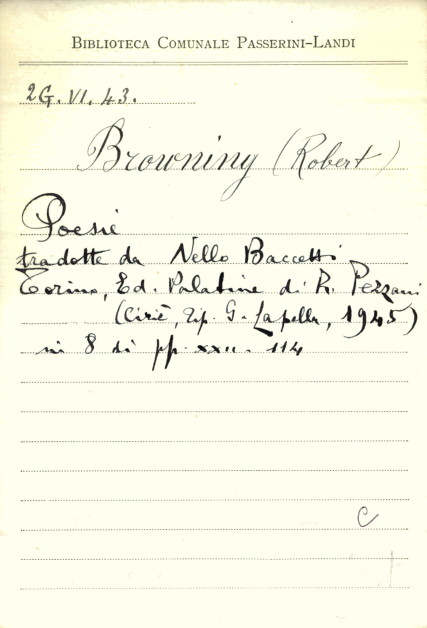 BIBLIOTECA COMUNALE PASSERINI-LANDI
2G. VI. 43.
Browning (Robert)
Poesie
tradotte da Nello Baccetti
Torino, Ed. Palatine di R. Pezzani
(Ciriè, Tip. G. Capella, 1945)
in 8 di pp. XXII. 114
C